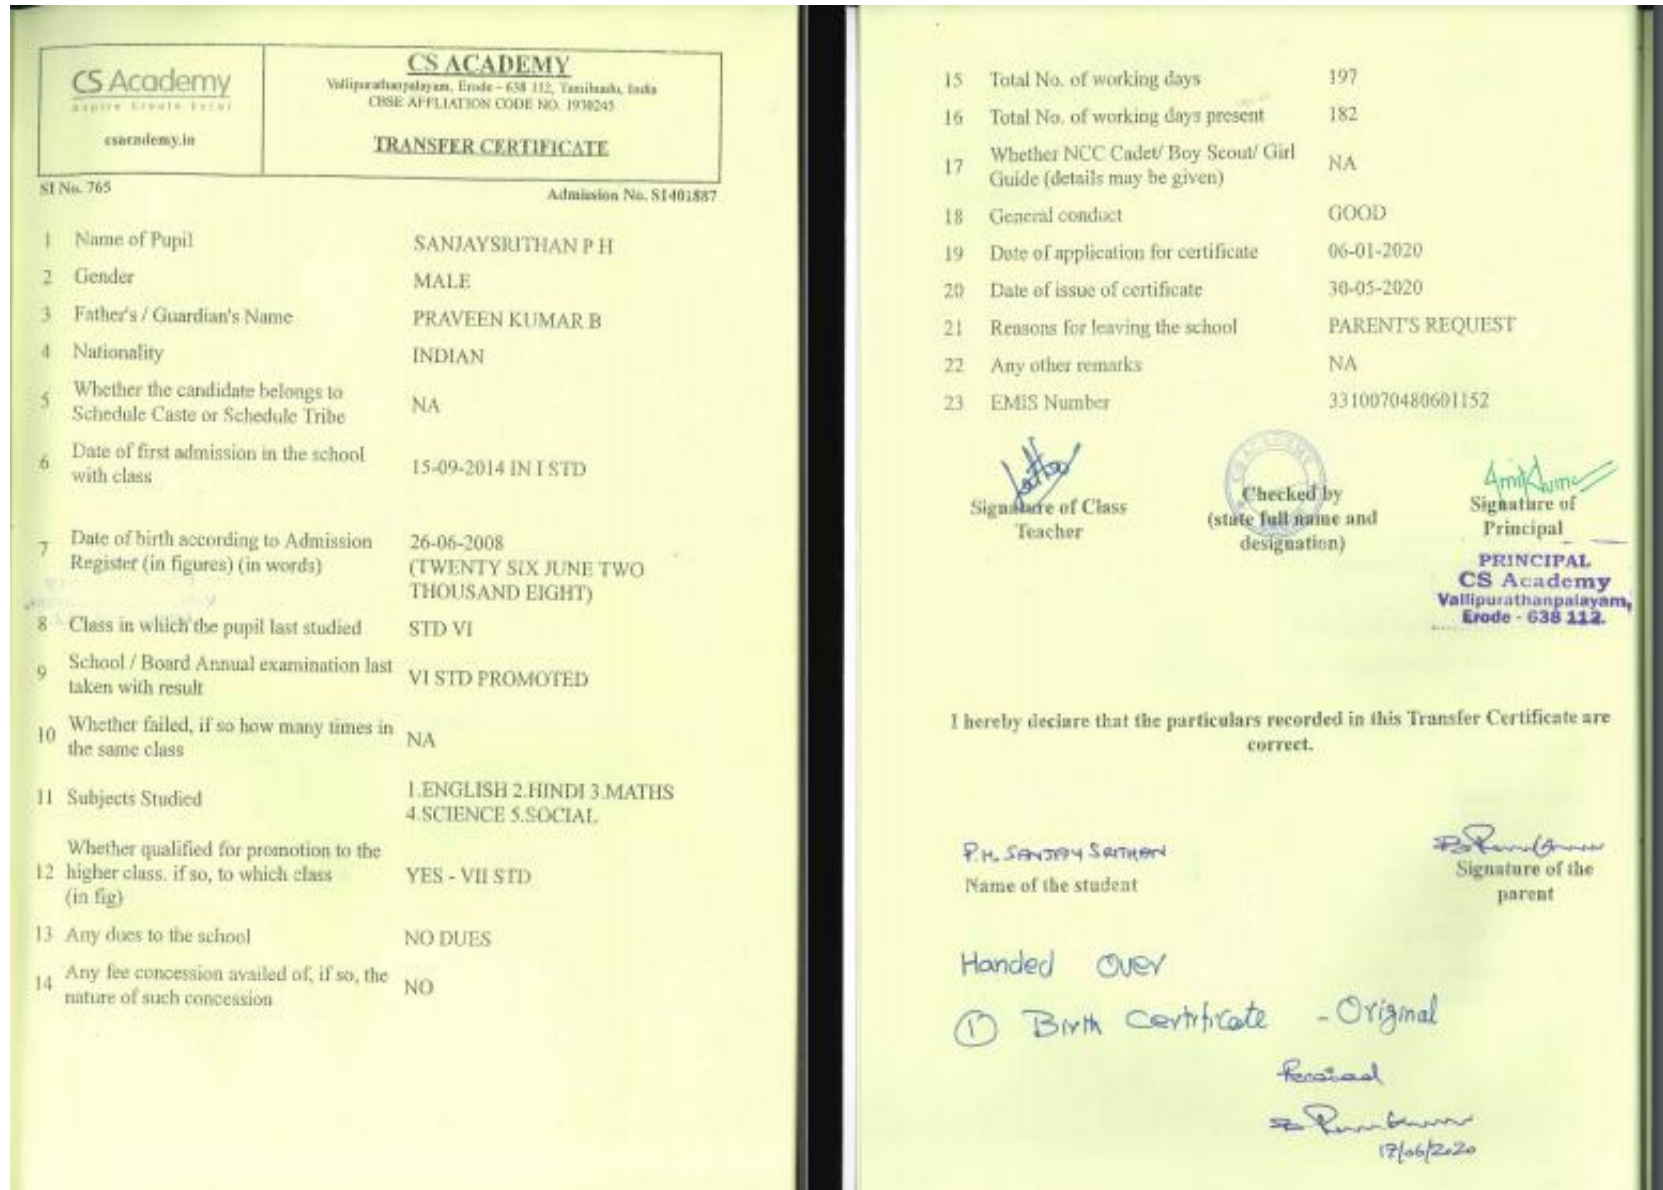 CS Academy
csacademy.in
CS ACADEMY
Vallipurathanpalayam, Erode - 638 112, Tamilnadu, India
CBSE AFFLIATION CODE NO. 1930245
TRANSFER CERTIFICATE
SI No. 765
Admission No. S1401887
1 Name of Pupil SANJAYSRITHAN P H
2 Gender MALE
3 Father's / Guardian's Name PRAVEEN KUMAR B
4 Nationality INDIAN
5 Whether the candidate belongs to
Schedule Caste or Schedule Tribe NA
6 Date of first admission in the school
with class 15-09-2014 IN I STD
7 Date of birth according to Admission
Register (in figures) (in words) 26-06-2008
(TWENTY SIX JUNE TWO
THOUSAND EIGHT)
8 Class in which the pupil last studied STD VI
9 School / Board Annual examination last
taken with result VI STD PROMOTED
10 Whether failed, if so how many times in
the same class NA
11 Subjects Studied 1.ENGLISH 2.HINDI 3.MATHS
4.SCIENCE 5.SOCIAL
Whether qualified for promotion to the
12 higher class. if so, to which class YES - VII STD
(in fig)
13 Any dues to the school NO DUES
14 Any fee concession availed of, if so, the
nature of such concession NO
15 Total No. of working days 197
16 Total No. of working days present 182
17 Whether NCC Cadet/ Boy Scout/ Girl
Guide (details may be given) NA
18 General conduct GOOD
19 Date of application for certificate 06-01-2020
20 Date of issue of certificate 30-05-2020
21 Reasons for leaving the school PARENT'S REQUEST
22 Any other remarks NA
23 EMIS Number 3310070480601152
CS ACADEMY
Signature of Class
Teacher
Checked by
(state full name and
designation)
Signature of
Principal
PRINCIPAL
CS Academy
Vallipurathanpalayam,
Erode - 638 112.
I hereby declare that the particulars recorded in this Transfer Certificate are
correct.
P.H. SANJAY SRITHAN
Name of the student
Signature of the
parent
Handed over
① Birth Certificate - Original
Received
17/06/2020